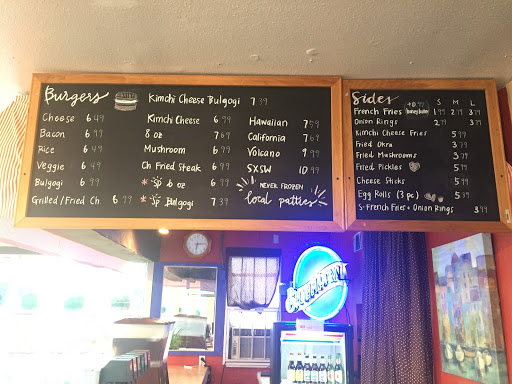 Burgers
Kimchi Cheese Bulgogi 7 39
Cheese 6 49
Bacon 6 99
Rice 6 49
Veggie 6 49
Bulgogi 6 99
Grilled/Fried Ch 6 99
Kimchi Cheese 6 99
8 oz 7 69
Mushroom 6 99
Ch Fried Steak 6 99
* Sp 6 oz 6 99
* Sp Bulgogi 7 39
Hawaiian 7 59
California 7 69
Volcano 9 99
SXSW 10 99
NEVER FROZEN
local patties
Sides
S M L
French Fries 1 99 2 79 3 79
Onion Rings 2 79 3 79
Kimchi Cheese Fries 5 99
Fried Okra 3 79
Fried Mushrooms 3 79
Fried Pickles 5 99
Cheese Sticks 5 99
Egg Rolls (3 pc) 5 99
S-French Fries + Onion Rings 3 99
BLUE MOON